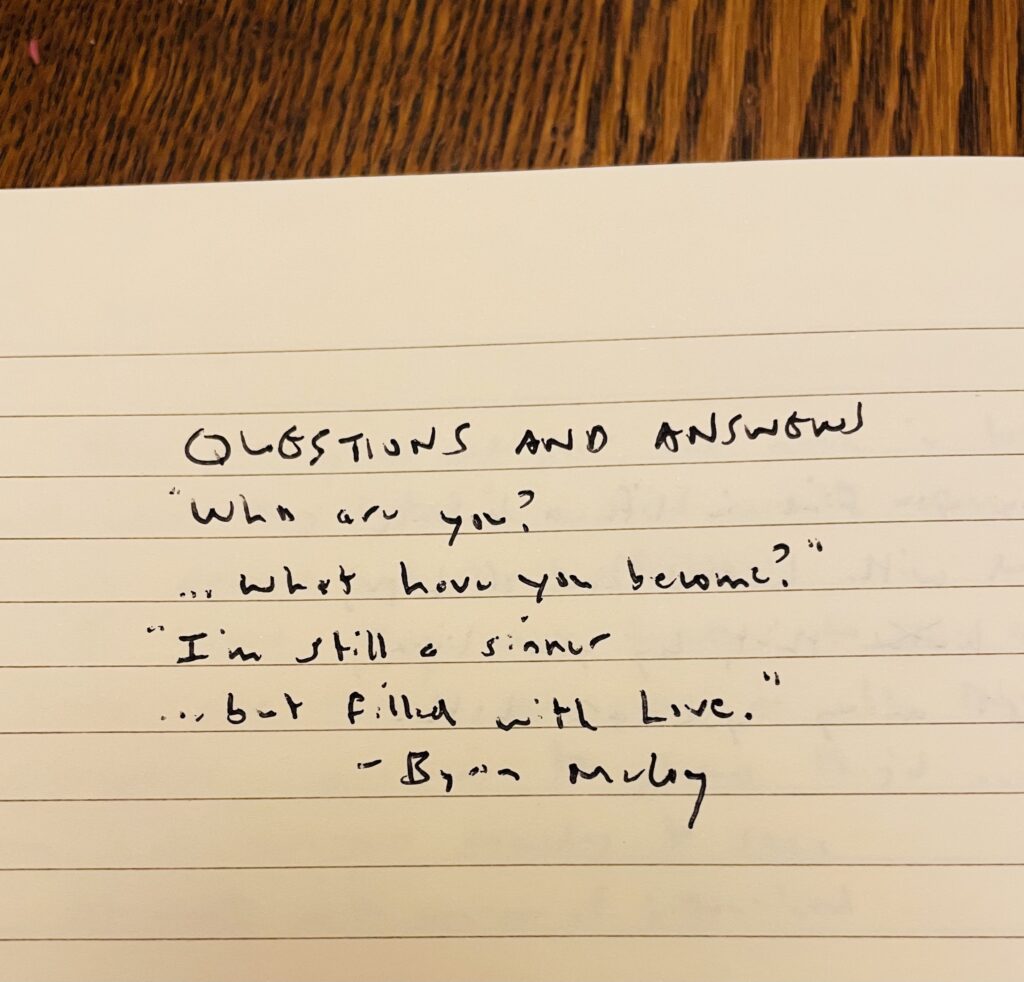 QUESTIONS AND ANSWERS
"Who are you?
... what have you become?"
"I'm still a sinner
... but filled with Love."
-